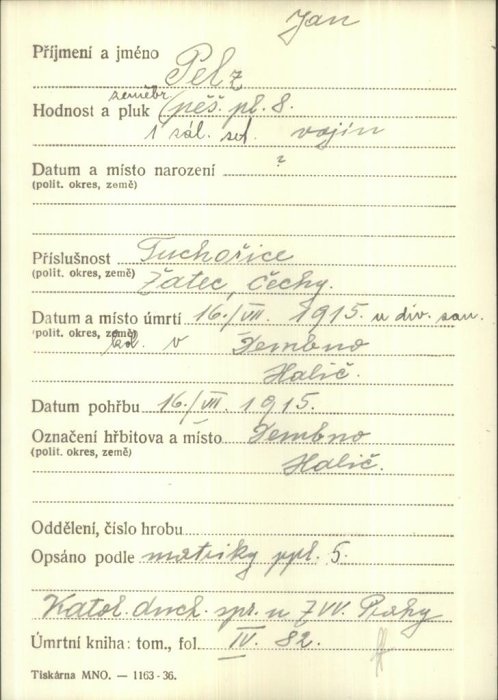 Jan
Příjmení a jméno Pelz
zeměbr.
Hodnost a pluk (pěš. pl. 8.
1 zál. set. vojín
Datum a místo narození ?
(polit. okres, země)
Příslušnost Tuchořice
(polit. okres, země) Žatec, Čechy.
Datum a místo úmrtí 16./VII. 1915. u div. san.
(polit. okres, země) kol. v Dembno
Halič.
Datum pohřbu 16./VII. 1915.
Označení hřbitova a místo Dembno
(polit. okres, země) Halič.
Oddělení, číslo hrobu
Opsáno podle matriky ppl. 5.
Katol. duch. spr. u ZVV. Prahy
Úmrtní kniha: tom., fol. IV. 82.
Tiskárna MNO. — 1163-36.